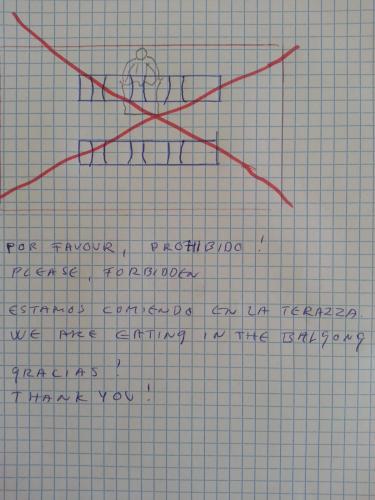 POR FAVOUR, PROHIBIDO!
PLEASE, FORBIDDEN
ESTAMOS COMIENDO EN LA TERAZZA.
WE ARE EATING IN THE BALGONG
GRACIAS!
THANK YOU!